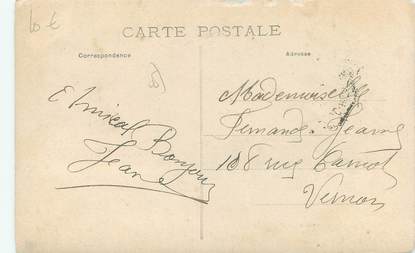 10 €
CARTE POSTALE
Correspondance
Adresse
Amical Bonjour
Jeane
Mademoiselle
Fernande Jeanne
108 rue Carnot
Vernon